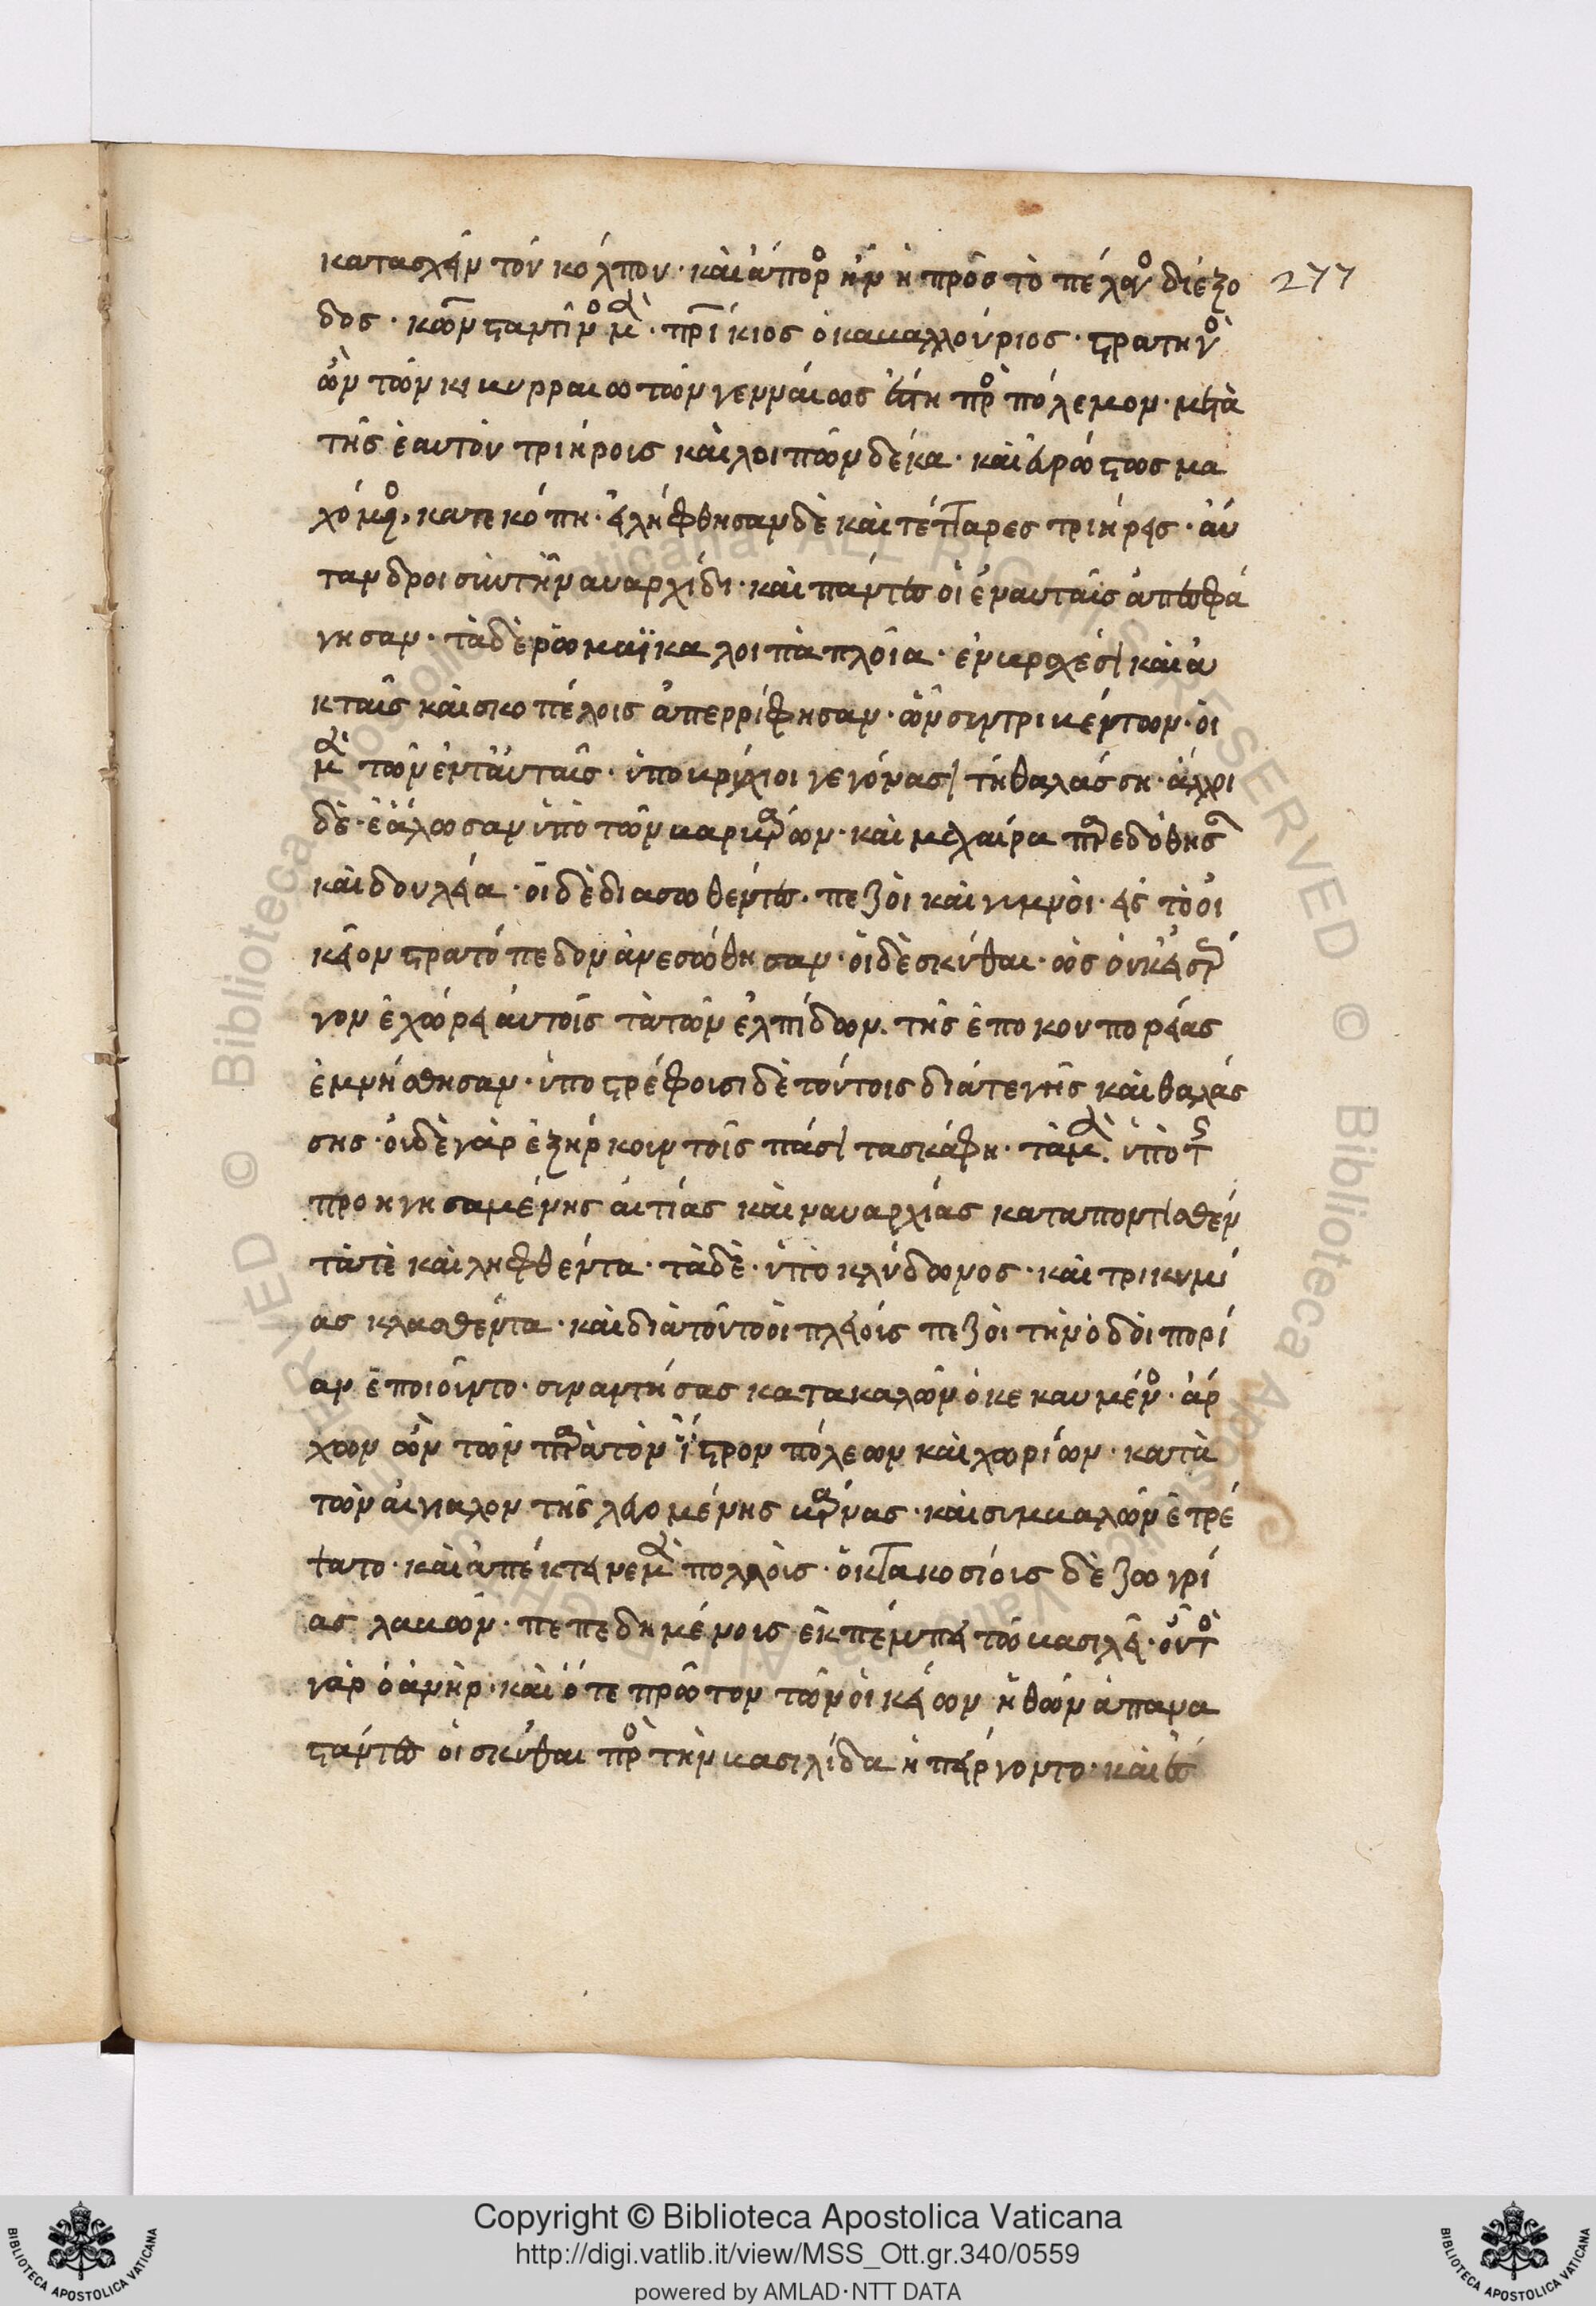 κατασχεῖν τὸν κόλπον· καὶ ἄπορ° ἦν ἡ πρὸς τὸ πέλαγ° διέξο 277
δος· κωνσταντῖν° μὲν· πρίκιος ὁ καβαλλούριος· στρατηγ°
ὢν τῶν κιβυρραιωτῶν γενναίως ἔστη πρ° πόλεμον· μετὰ
τῆς ἑαυτοῦ τριήρους καὶ λοιπῶν δέκα· καὶ εὐρώστως μα
χόμεν°, κατεκόπη· ἐλήφθησαν δὲ καὶ τέτταρες τριήρεις· αὔ
τανδροι σὺν τῇ ναυαρχίδι· καὶ πάντες οἱ ἐν αὐταῖς ἀπεσφά
γησαν· τὰ δὲ ῥωμαϊκα λοιπὰ πλοῖα· ἐν βραχέσι καὶ ἀ
κταῖς καὶ σκοπέλοις ἀπερρίφησαν· ὧν συντριβέντων· οἱ
μὲν τῶν ἐντ αὐταῖς· ὑποβρύχιοι γεγόνασι τῇ θαλάσσῃ· ἄλλοι
δὲ· ἑάλωσαν ὑπὸ τῶν βαρβάρων· καὶ μαχαίρα παρεδόθησαν
καὶ δουλεία· οἱ δὲ διασωθέντες· πεζοὶ καὶ γυμνοὶ· εἰς τὸ οἰ
κεῖον στρατόπεδον ἀνεσώθησαν· οἱ δὲ σκύθαι· ὡς οὐκ εἰς ἔρ
γον ἐχώρει αὐτοῖς τὰ τῶν ἐλπίδων. τῆς ἐπ οἴκου πορείας
ἐμνήσθησαν· ὑποστρέφουσι δὲ τούτοις διά τε γῆς καὶ θαλάσ
σης· οὐδὲ γὰρ ἐξήρκουν τοῖς πάσι τα σκάφη· τὰ μὲν. ὑπὸ τῆς
προηγησαμένης αἰτίας καὶ ναυαρχίας καταποντισθέν
τά τε καὶ ληφθέντα· τὰ δὲ· ὑπὸ κλύδωνος· καὶ τρικυμί
ας κλασθέντα· καὶ διὰ τοῦτο οἱ πλείους πεζοὶ τὴν ὁδοιπορί
αν ἐποιοῦντο· συναντήσας κατακαλὼν ὁ κεκαυμέν°· ἄρ
χων ὢν τῶν παρὰ τὸν ἴστρον πόλεων καὶ χωρίων· κατὰ
τὸν αἰγιαλον τῆς λεγομένης βάρνας· καὶ συμβαλὼν ἐτρέ
ψατο· καὶ ἀπέκτεινε μὲν πολλοὺς· ὀκτακοσίους δὲ ζωγρί
ας λαβὼν· πεπεδημένους ἐκπέμπει τῶ βασιλεῖ· οὗτ°
γὰρ ὁ ἀνὴρ· καὶ ὅτε πρῶτον τῶν οἰκείων ἠθῶν ἀπανα
σταντες οἱ σκύθαι πρ° τὴν βασιλίδα ἠπείγοντο· καὶ ἐς